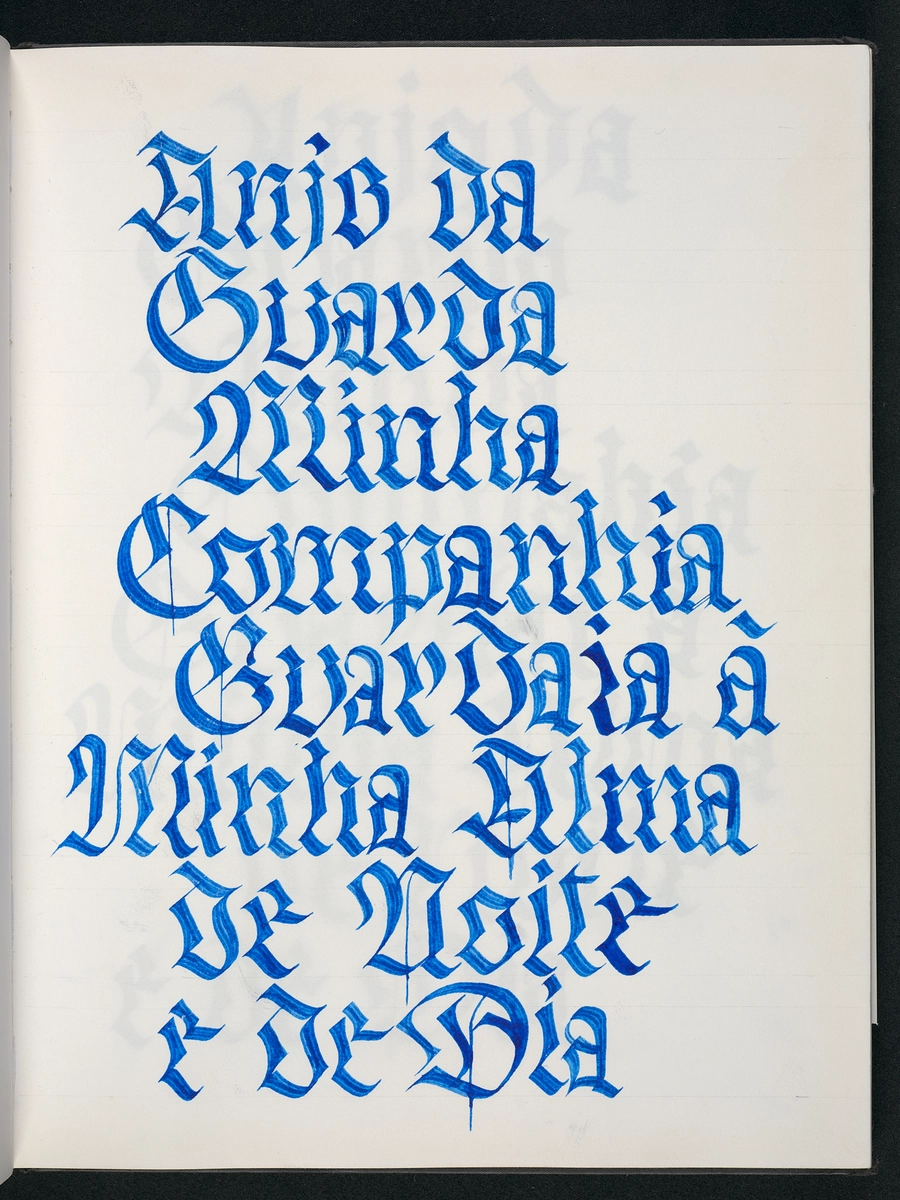 Anjo da
Guarda
Minha
Companhia
Guardaia à
Minha Alma
de Noite
e de Dia